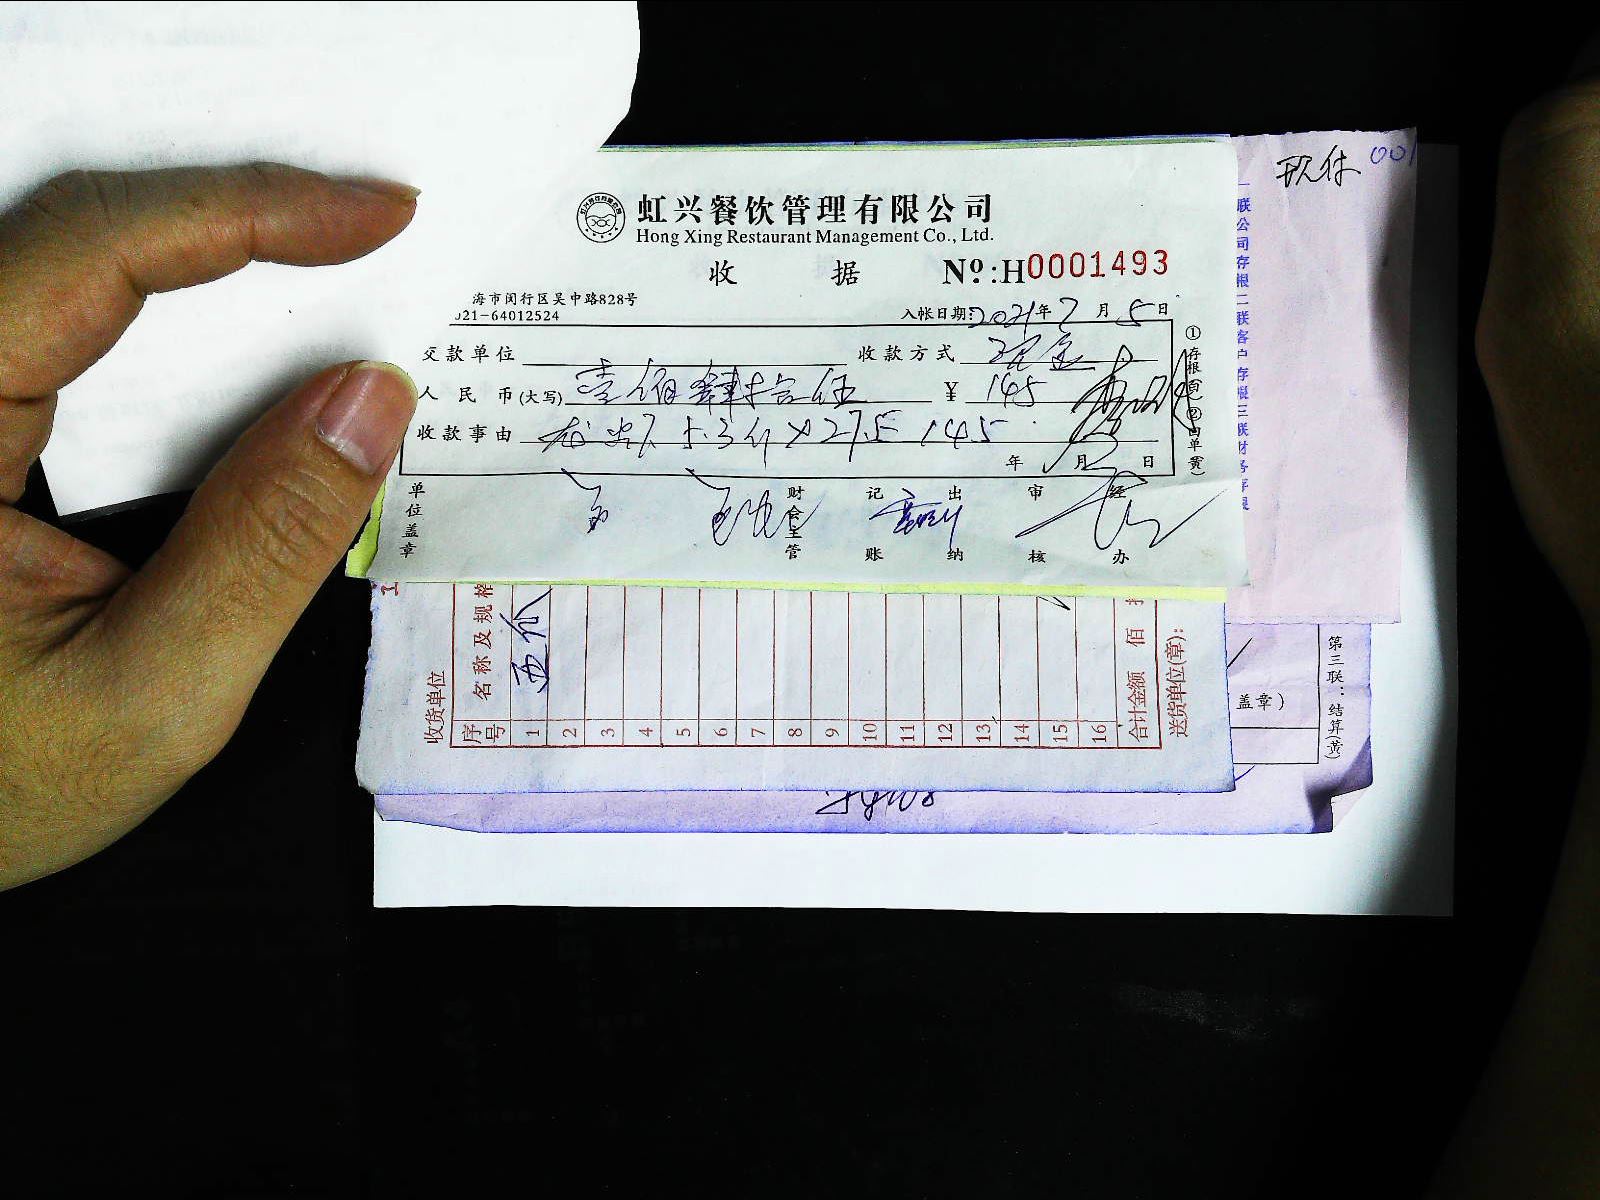 虹兴餐饮管理有限公司
Hong Xing Restaurant Management Co., Ltd.
收据 Nº:H0001493
海市闵行区吴中路828号
021-64012524
入帐日期:2021年7月5日
交款单位 收款方式 现金
人民币(大写) 壹佰肆拾伍 ¥ 145
收款事由 5.3斤×27.5 145
年 月 日
单位盖章 财会主管 记账 出纳 审核 经办
①存根(白) ②客单(黄)
现付 001
一联公司存根二联客户存根三联财务存根
收货单位
序号 名称及规格
1
2
3
4
5
6
7
8
9
10
11
12
13
14
15
16
合计金额 佰
送货单位(章):
盖章)
第三联:结算(黄)